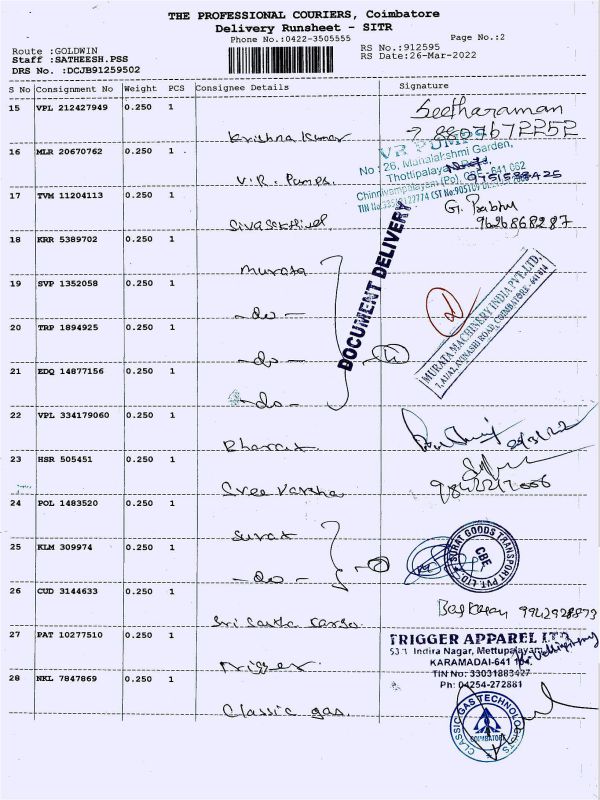 THE PROFESSIONAL COURIERS, Coimbatore
Delivery Runsheet - SITR
Phone No.:0422-3505555
Page No.:2
Route :GOLDWIN
Staff :SATHEESH.PSS
DRS No. :DCJB91259502
RS No.:912595
RS Date:26-Mar-2022
S No Consignment No Weight PCS Consignee Details Signature
15 VPL 212427949 0.250 1
Seetharaman
Krishna Kumar
16 MLR 20670762 0.250 1
VR PUMPS
No : 26, Mahalakshmi Garden,
V.R. Pumps.
17 TVM 11204113 0.250 1
G. Prabhu
9626868287
18 KRR 5389702 0.250 1
murata
DOCUMENT DELIVERY
19 SVP 1352058 0.250 1
- do -
20 TRP 1894925 0.250 1
- do -
MURATA MACHINERY INDIA PVT.LTD.
21 EDQ 14877156 0.250 1
- do -
22 VPL 334179060 0.250 1
Bharat
23 HSR 505451 0.250 1
Sree Varsha
24 POL 1483520 0.250 1
Surat
25 KLM 309974 0.250 1
- do -
SURAT GOODS TRANSPORT PVT. LTD
CBE
26 CUD 3144633 0.250 1
Baskaran 9942928873
27 PAT 10277510 0.250 1
TRIGGER APPAREL
Indira Nagar, Mettupalayam
KARAMADAI-641 104.
TIN No: 33031883427
Ph: 04254-272881
Trigger
28 NKL 7847869 0.250 1
Classic gas
CLASSIC GAS TECHNOLOGISTS
COIMBATORE